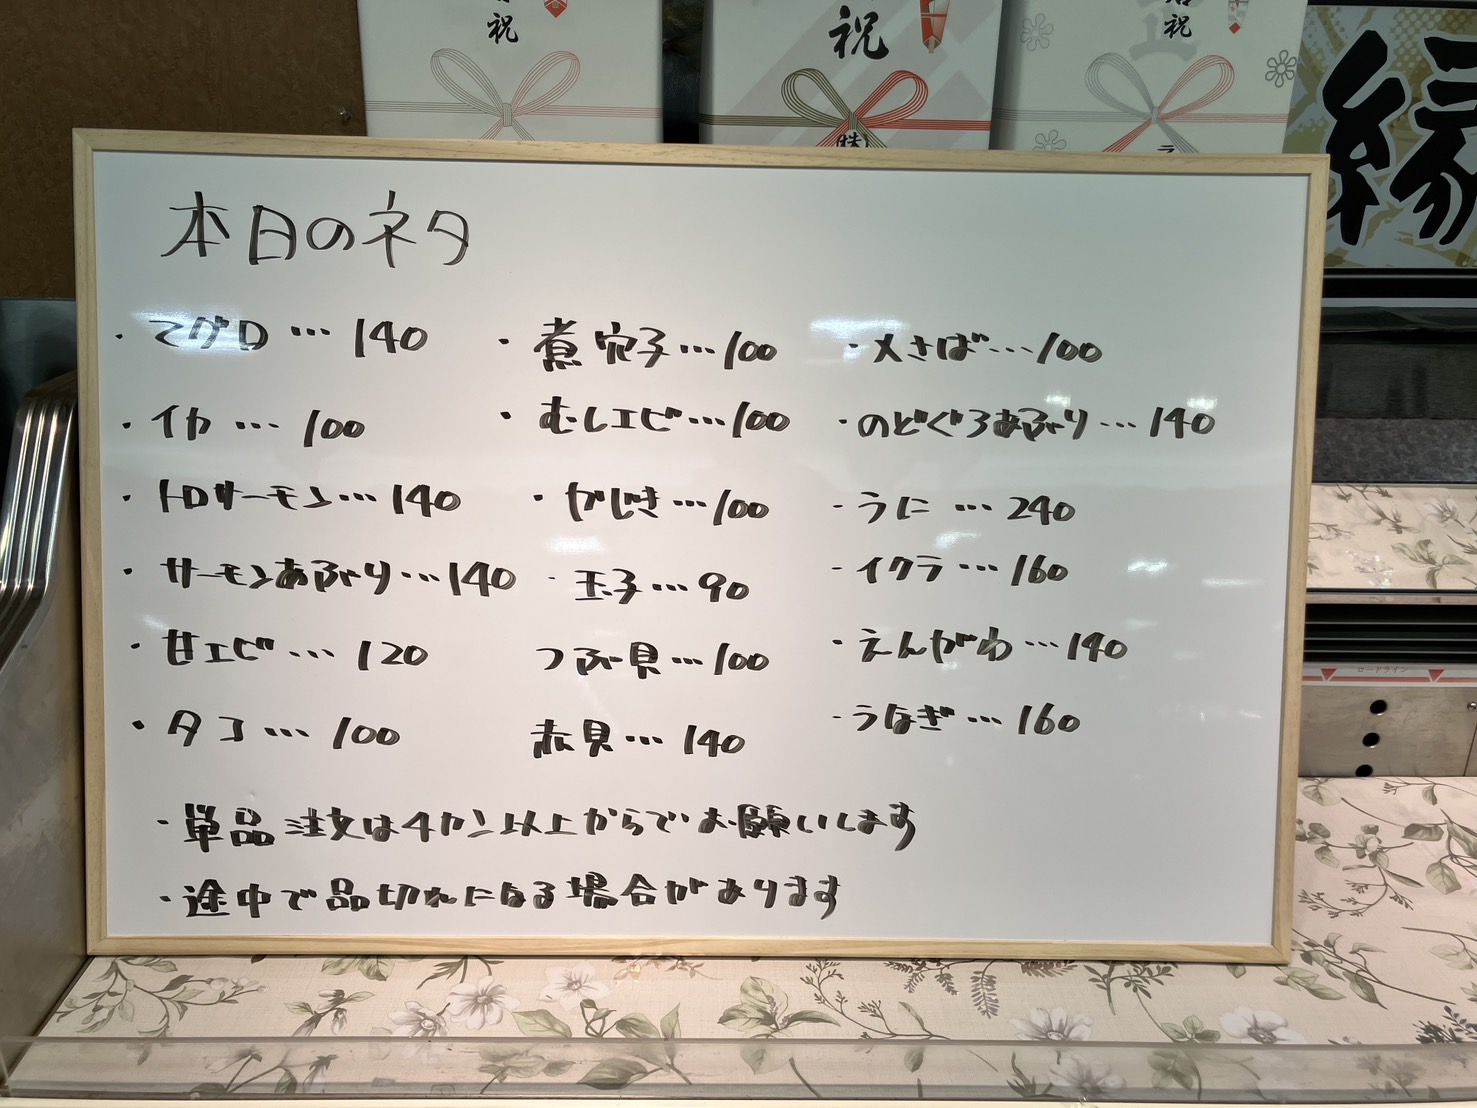 祝
祝
祝
縁
本日のネタ
・マグロ…140
・イカ…100
・トロサーモン…140
・サーモンあぶり…140
・甘エビ…120
・タコ…100
・煮穴子…100
・むしエビ…100
・かじき…100
・玉子…90
つぶ貝…100
赤貝…140
・〆さば…100
・のどぐろあぶり…140
・うに…240
・イクラ…160
・えんがわ…140
・うなぎ…160
・単品注文は4カン以上からでお願いします
・途中で品切れになる場合があります
ロードライン